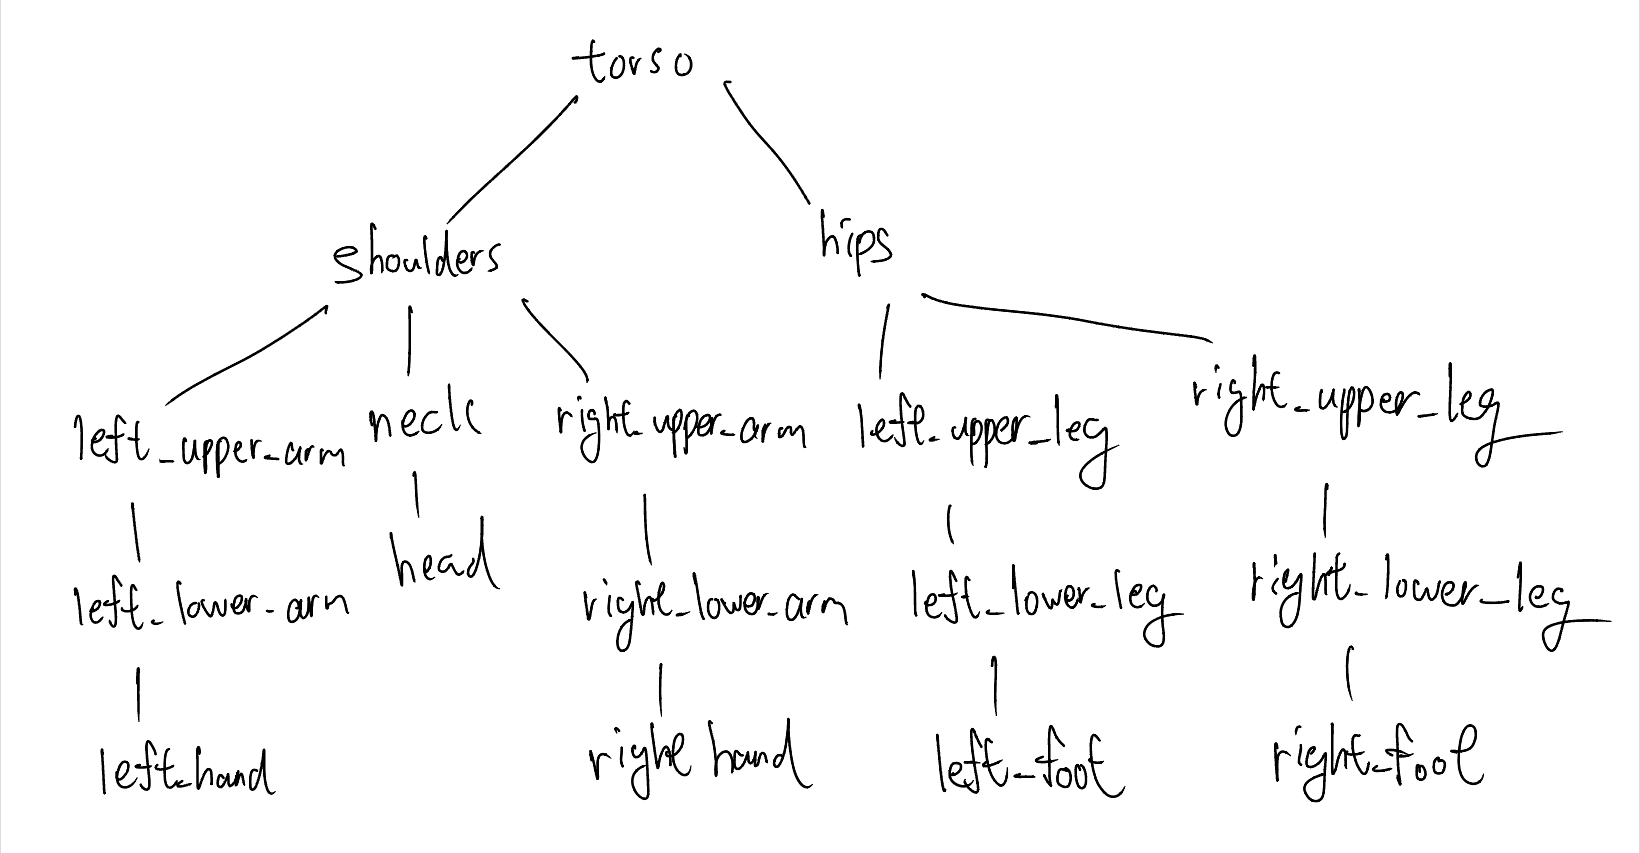 torso
shoulders hips
left_upper_arm neck right_upper_arm left_upper_leg right_upper_leg
head
left_lower_arm right_lower_arm left_lower_leg right_lower_leg
left_hand right hand left_foot right_foot